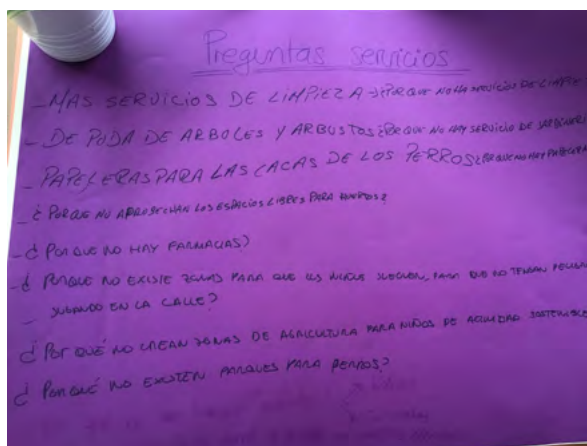 Preguntas servicios
- MAS SERVICIOS DE LIMPIEZA ¿PORQUE NO HA SERVICIOS DE LIMPIE
- DE PODA DE ARBOLES Y ARBUSTOS ¿PORQUE NO HAY SERVICIO DE JARDINERI
- PAPELERAS PARA LAS CACAS DE LOS PERROS ¿PORQUE NO HAY PAPELERA
- ¿PORQUE NO APROVECHAN LOS ESPACIOS LIBRES PARA
- ¿POR QUE NO HAY FARMACIAS?
- ¿PORQUE NO EXISTE ZONAS PARA QUE LOS NIÑOS JUEGUEN, PARA QUE NO TENGAN PELIGRO
JUGANDO EN LA CALLE?
¿POR QUÉ NO CREAN ZONAS DE AGRICULTURA PARA NIÑOS DE ACTIVIDAD SOSTENIBLE
¿PORQUÉ NO EXISTEN PARQUES PARA PERROS?